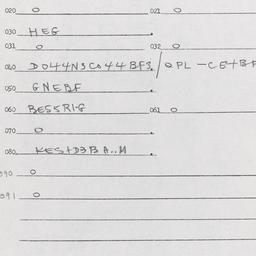 020 O 021 O
030 HEG
031 O 032 O
040 D044N3C044BF3. / O PL -CE+BF
050 GNEBF
060 BESSRI-G 061 O
070 O
080 KES+D3BA..M
090 O
091 O